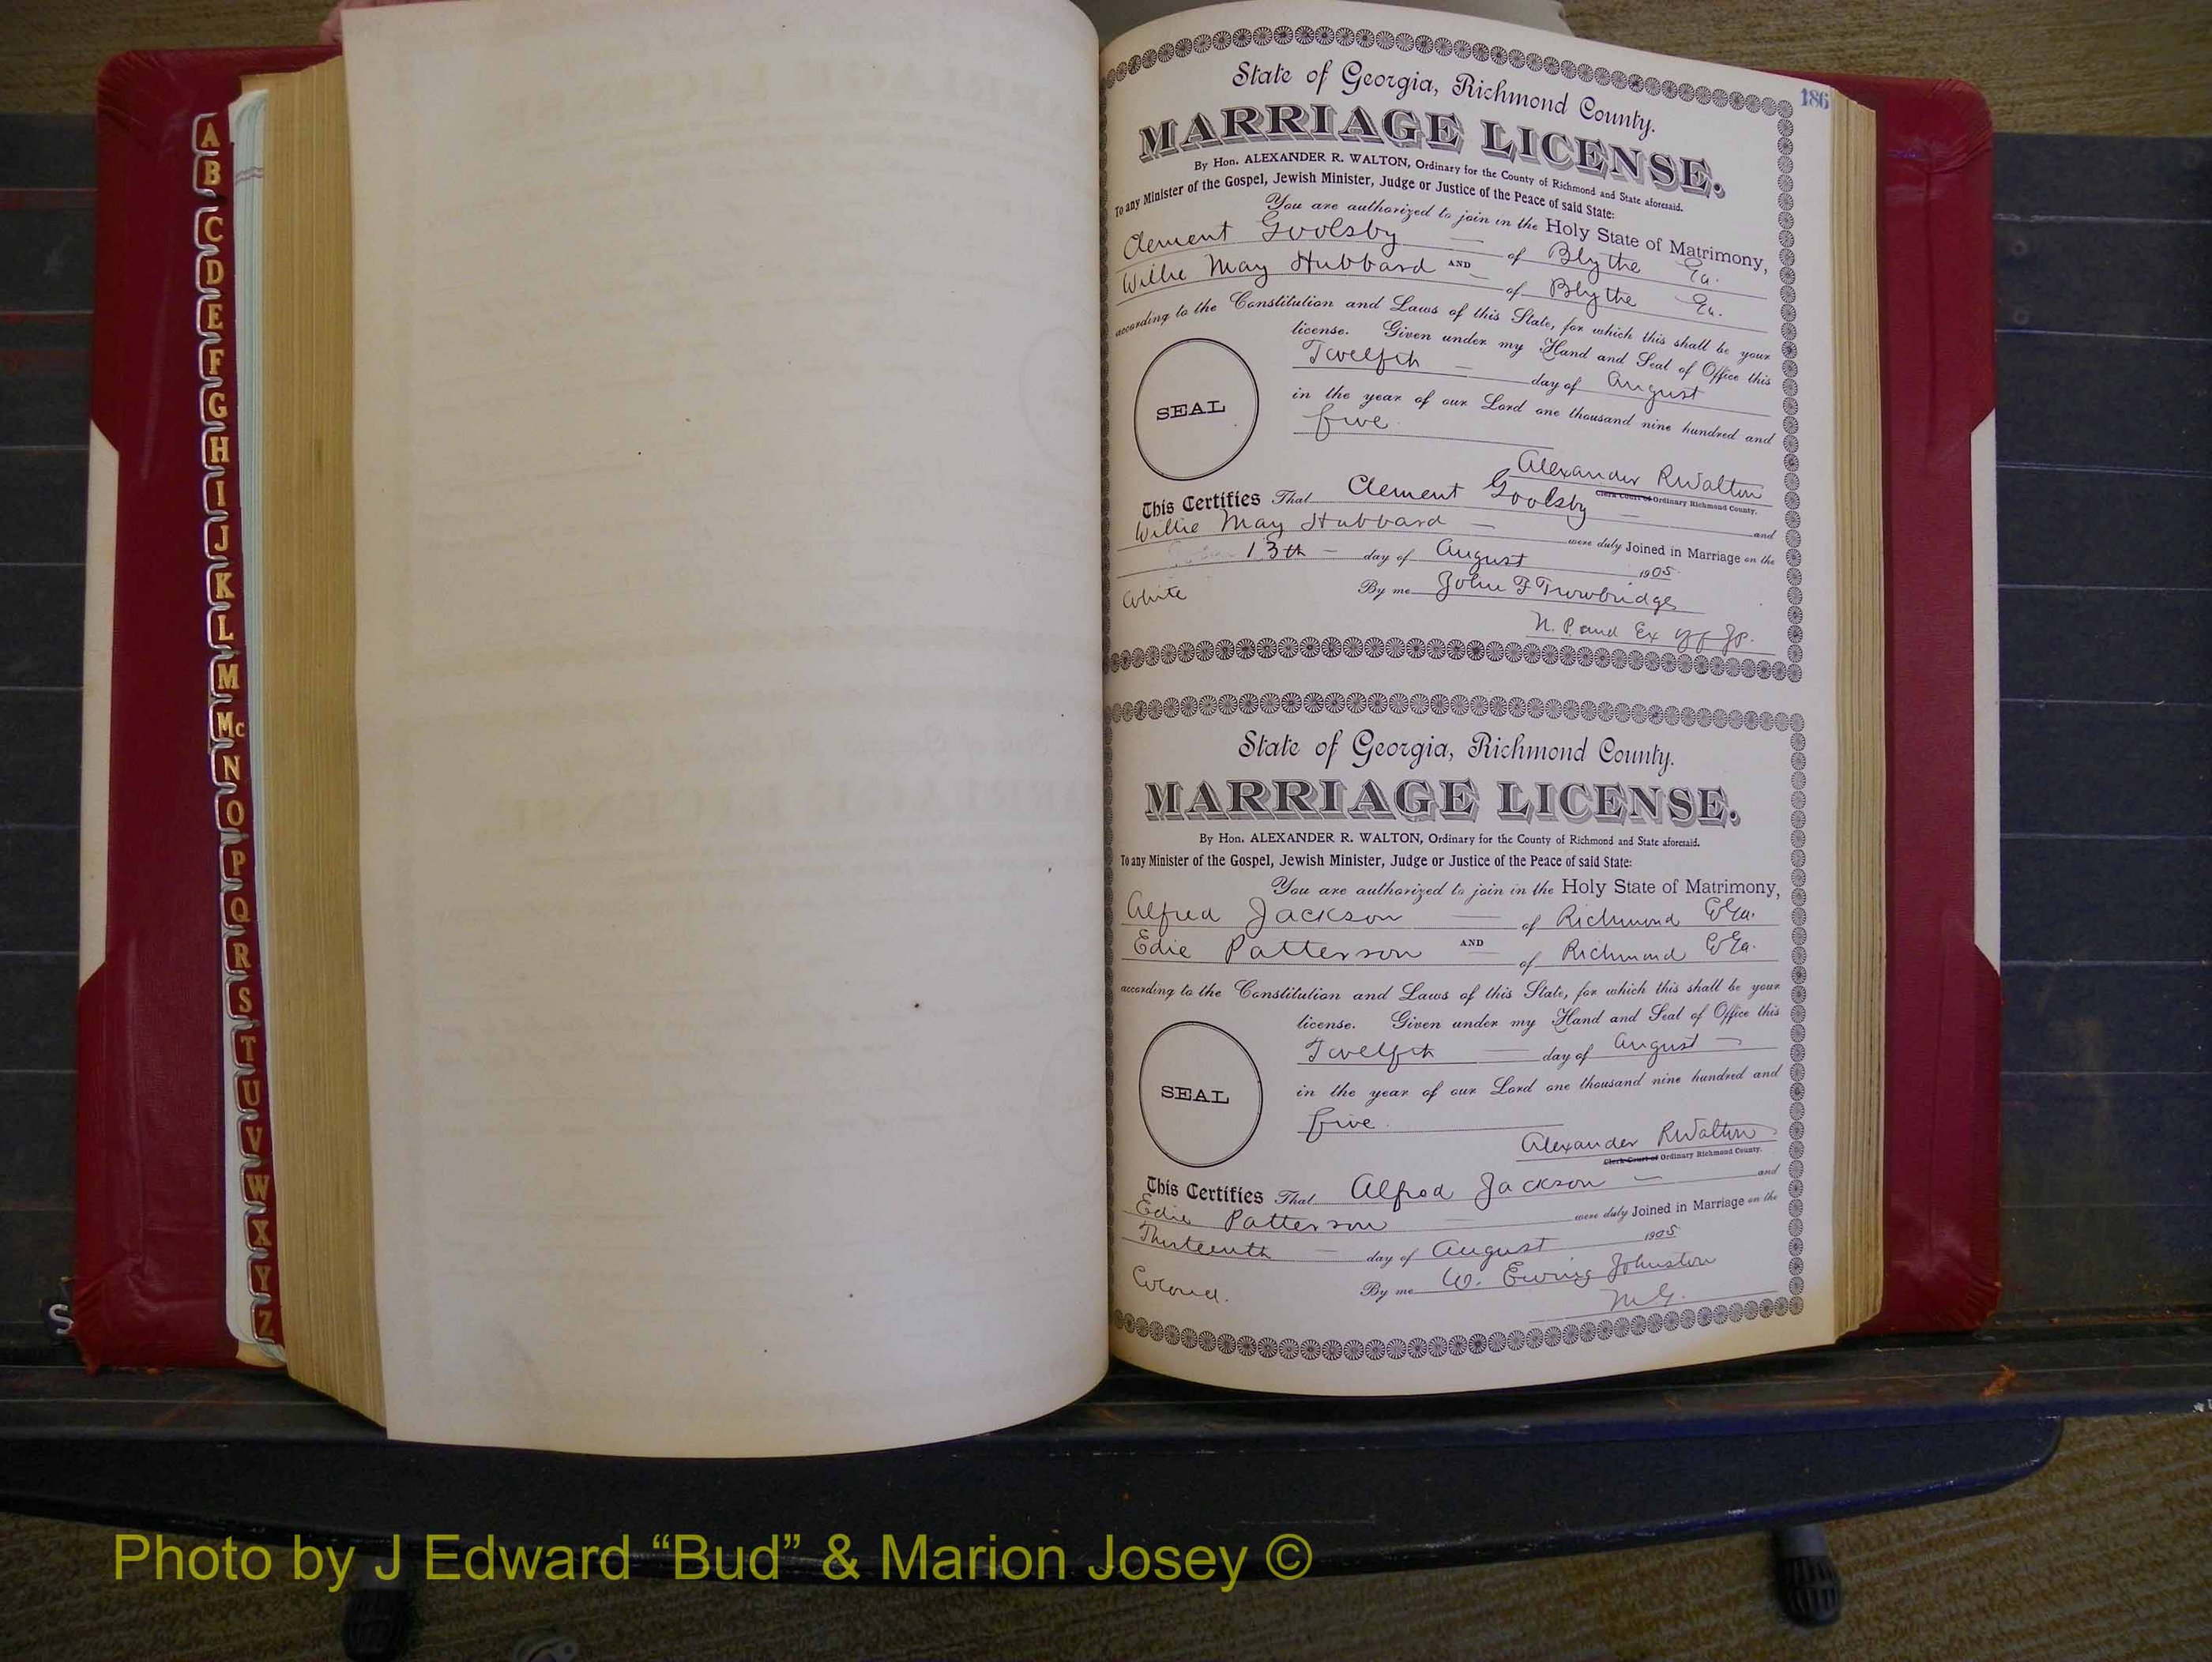 A
B
C
D
E
F
G
H
I
J
K
L
M
Mc
N
O
P
Q
R
S
T
U
V
W
X
Y
Z
S
186
State of Georgia, Richmond County.
MARRIAGE LICENSE.
By Hon. ALEXANDER R. WALTON, Ordinary for the County of Richmond and State aforesaid.
To any Minister of the Gospel, Jewish Minister, Judge or Justice of the Peace of said State:
You are authorized to join in the Holy State of Matrimony,
Clement Goolsby of Blythe Ga.
AND
Willie May Hubbard of Blythe Ga.
according to the Constitution and Laws of this State, for which this shall be your
license. Given under my Hand and Seal of Office this
Twelfth day of August
in the year of our Lord one thousand nine hundred and
five
SEAL
Alexander R Walton
Clerk Court of Ordinary Richmond County.
This Certifies That Clement Goolsby and
Willie May Hubbard were duly Joined in Marriage on the
13th day of August 1905
White By me John F Trowbridge
N. P. and Ex Off Jp.
State of Georgia, Richmond County.
MARRIAGE LICENSE.
By Hon. ALEXANDER R. WALTON, Ordinary for the County of Richmond and State aforesaid.
To any Minister of the Gospel, Jewish Minister, Judge or Justice of the Peace of said State:
You are authorized to join in the Holy State of Matrimony,
Alfred Jackson of Richmond Co Ga.
AND
Edie Patterson of Richmond Co Ga.
according to the Constitution and Laws of this State, for which this shall be your
license. Given under my Hand and Seal of Office this
Twelfth day of August
in the year of our Lord one thousand nine hundred and
five
SEAL
Alexander R Walton
Clerk Court of Ordinary Richmond County.
This Certifies That Alfred Jackson and
Edie Patterson were duly Joined in Marriage on the
Thirteenth day of August 1905
Colored. By me W. Ewing Johnston
M G.
Photo by J Edward “Bud” & Marion Josey ©